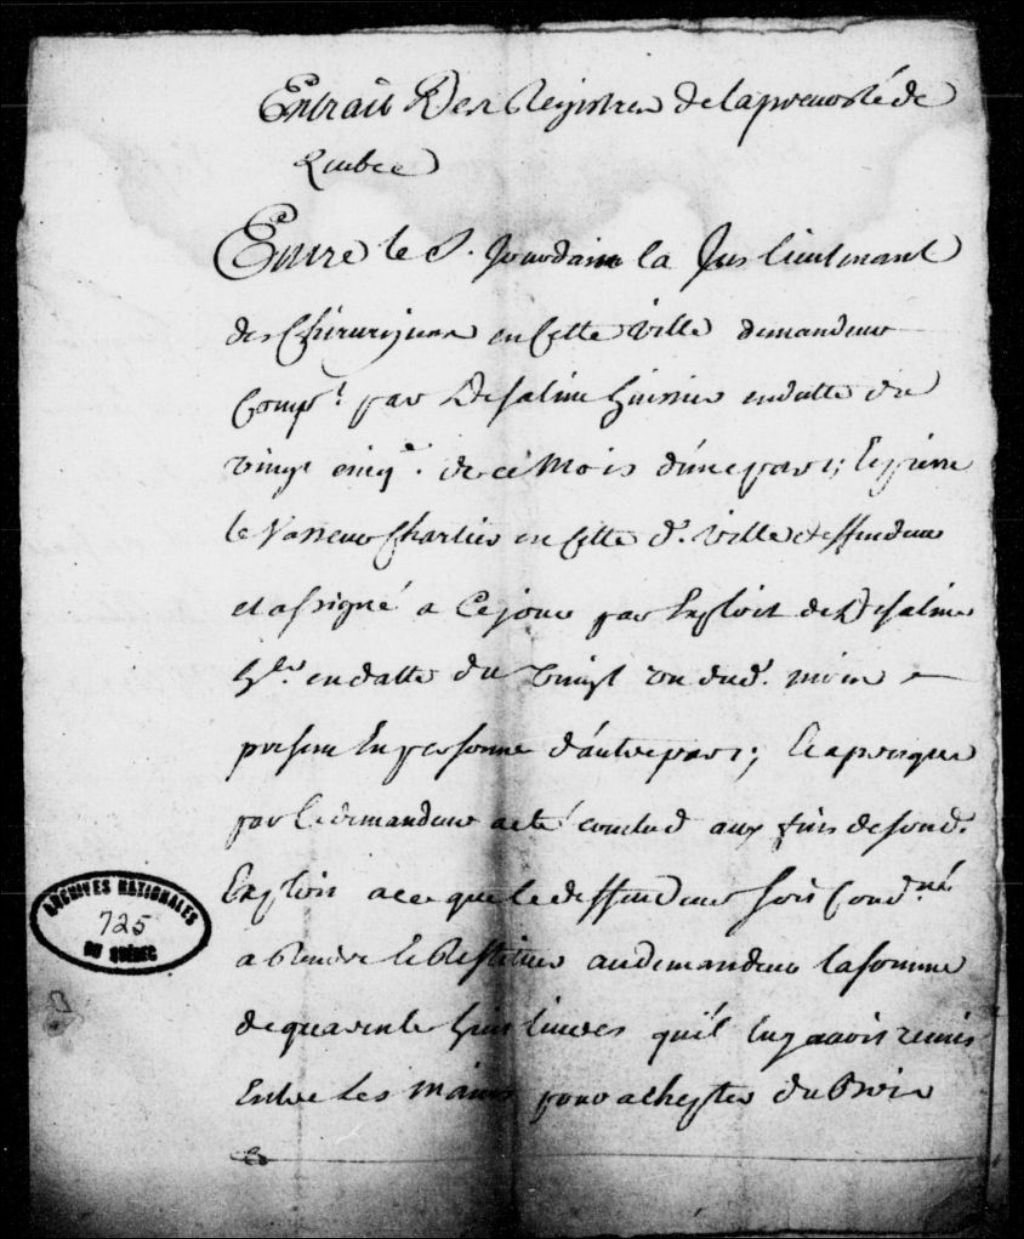 Extrait Des Registres de la prevosté de
Quebec
Entre le S. Jourdain la Jus lieutenant
des Chirurgiens en Cette ville demandeur
Comp.t par Desaline huissier en datte du
vingt cinq. de ce Mois d'une part; Et pierre
le Vasseur Chartier en Cette d. ville deffendeur
et assigné a Ce jour par Exploit de Desaline
h.er en datte du vingt un dud. mois
present En personne d'autre part;
par Le demandeur a été conclud aux fins de sond.
Exploit a ce que le deffendeur soit Cond.né
a Rendre Et Restituer au demandeur la somme
de quarente huit livres qu'il luy avoit remis
Entre Les Mains pour achepter du Bois
ARCHIVES NATIONALES
725
DU QUÉBEC